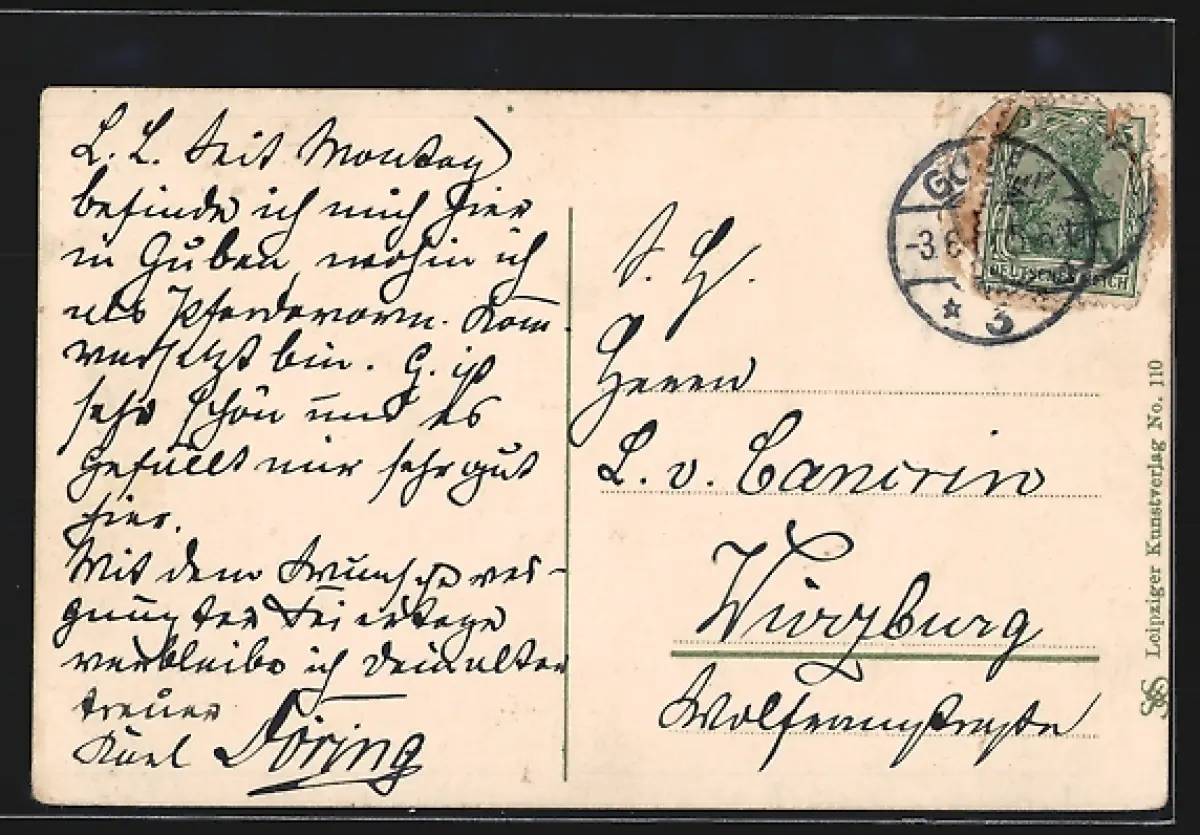 L. L. Seit Montag
befinde ich mich hier
in Guben, wohin ich
als Pferdevorm. Kom.
versetzt bin. G. ist
sehr schön und es
gefällt mir sehr gut
hier.
Mit dem Wunsche ver-
gnügter Feiertage
verbleibe ich Dein alter
treuer
Karl Döring
S. H.
Herrn
L. v. Cancrin
Würzburg
Wolframstraße
GU
-3.6.
* 3
DEUTSCHES REICH
Leipziger Kunstverlag No. 110